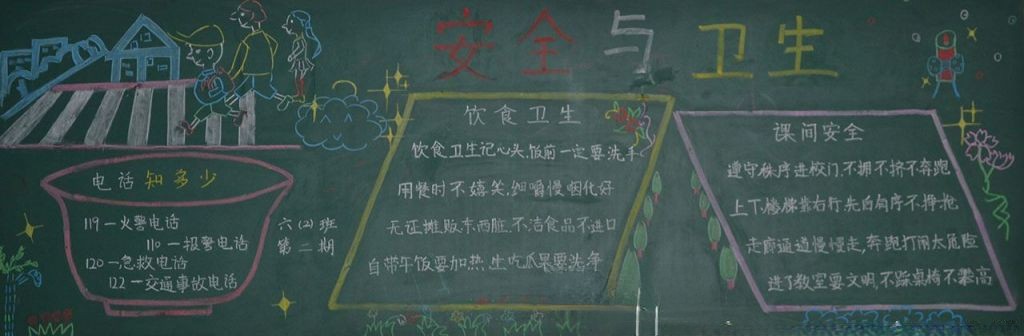 安全与卫生
电话知多少
119一火警电话
110一报警电话
120一急救电话
122一交通事故电话
六(2)班
第二期
饮食卫生
饮食卫生记心头,饭前一定要洗手
用餐时不嬉笑,细嚼慢咽化好
无证摊贩东西脏,不洁食品不进口
自带午饭要加热,生吃瓜果要洗净
课间安全
遵守秩序进校门,不拥不挤不奔跑
上下楼梯靠右行,先后有序不挣抢
走廊通道慢慢走,奔跑打闹太危险
进了教室要文明,不踩桌椅不攀高